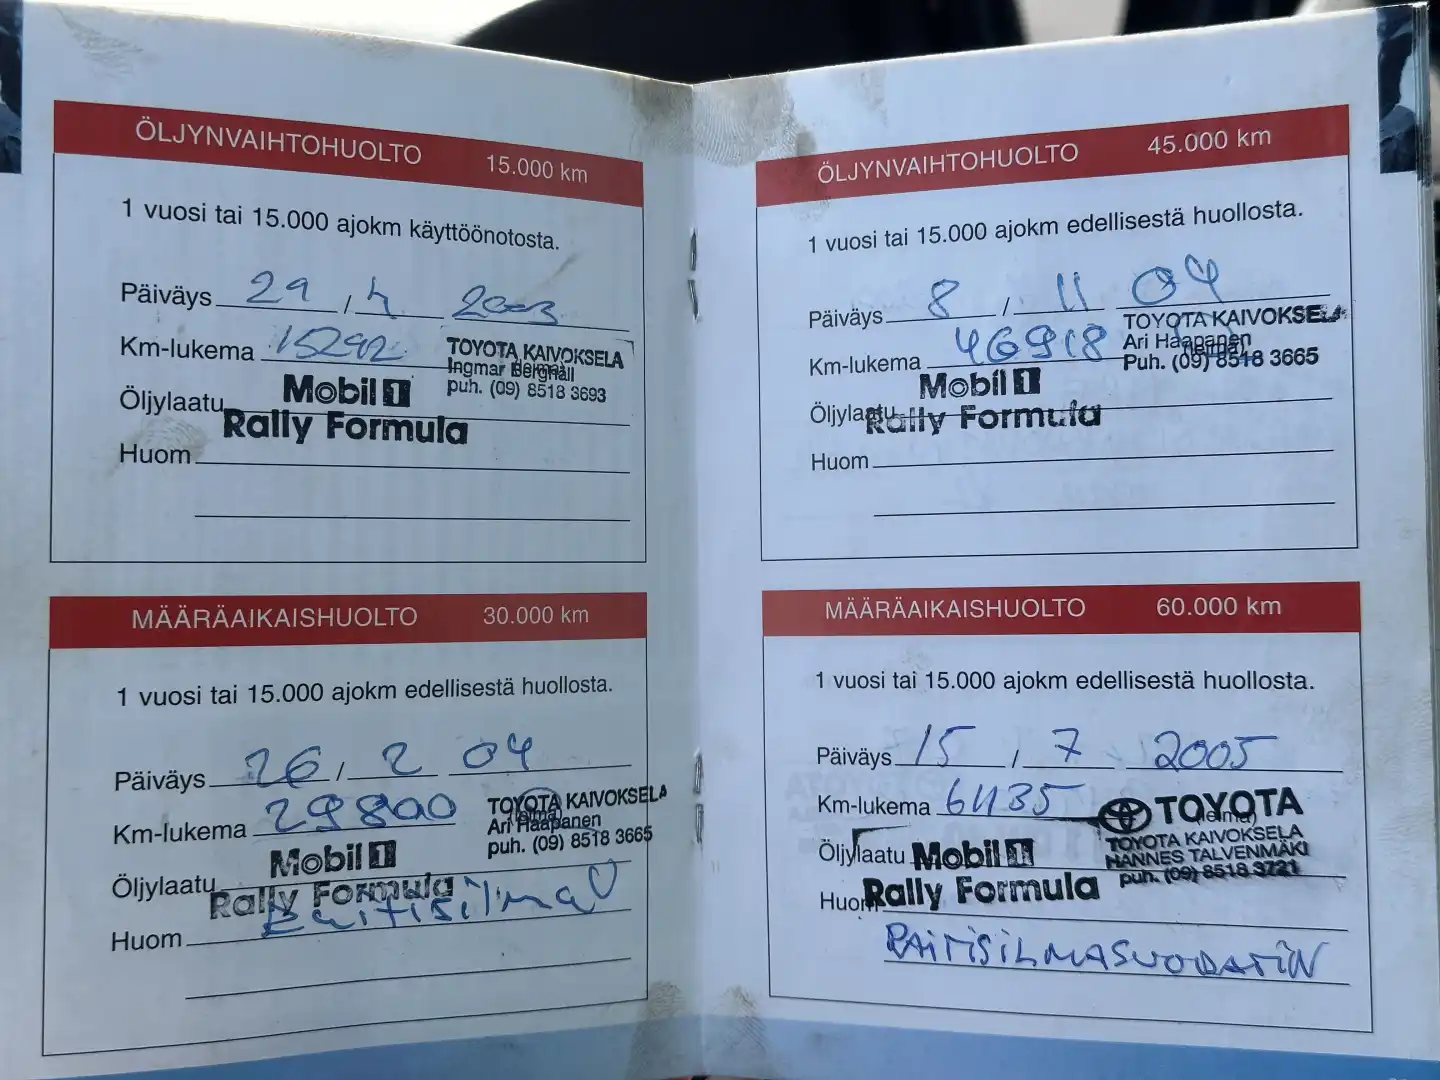 ÖLJYNVAIHTOHUOLTO 15.000 km
1 vuosi tai 15.000 ajokm käyttöönotosta.
Päiväys 29 / 4 2003
Km-lukema 15292
TOYOTA KAIVOKSELA
Ingmar Berghäll
puh. (09) 8518 3693
Öljylaatu Mobil 1
Rally Formula
Huom
MÄÄRÄAIKAISHUOLTO 30.000 km
1 vuosi tai 15.000 ajokm edellisestä huollosta.
Päiväys 26 / 2 04
Km-lukema 29800
TOYOTA KAIVOKSELA
Ari Haapanen
puh. (09) 8518 3665
Öljylaatu Mobil 1
Rally Formula
Huom Raitisilma
ÖLJYNVAIHTOHUOLTO 45.000 km
1 vuosi tai 15.000 ajokm edellisestä huollosta.
Päiväys 8 / 11 04
Km-lukema 46918
TOYOTA KAIVOKSELA
Ari Haapanen
Puh. (09) 8518 3665
Öljylaatu Mobil 1
Rally Formula
Huom
MÄÄRÄAIKAISHUOLTO 60.000 km
1 vuosi tai 15.000 ajokm edellisestä huollosta.
Päiväys 15 / 7 2005
Km-lukema 61135
TOYOTA
(leima)
TOYOTA KAIVOKSELA
HANNES TALVENMÄKI
puh. (09) 8518 3721
Öljylaatu Mobil 1
Huom Rally Formula
RAITISILMASUODATIN